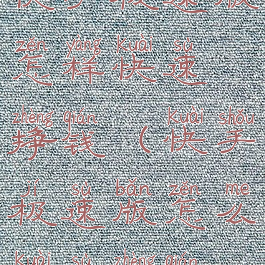 zěn yàng kuài sù
怎样快速
zhèng qián kuài shǒu
挣钱（快手
jí sù bǎn zěn me
极速版怎么
kuài sù zhèng qián